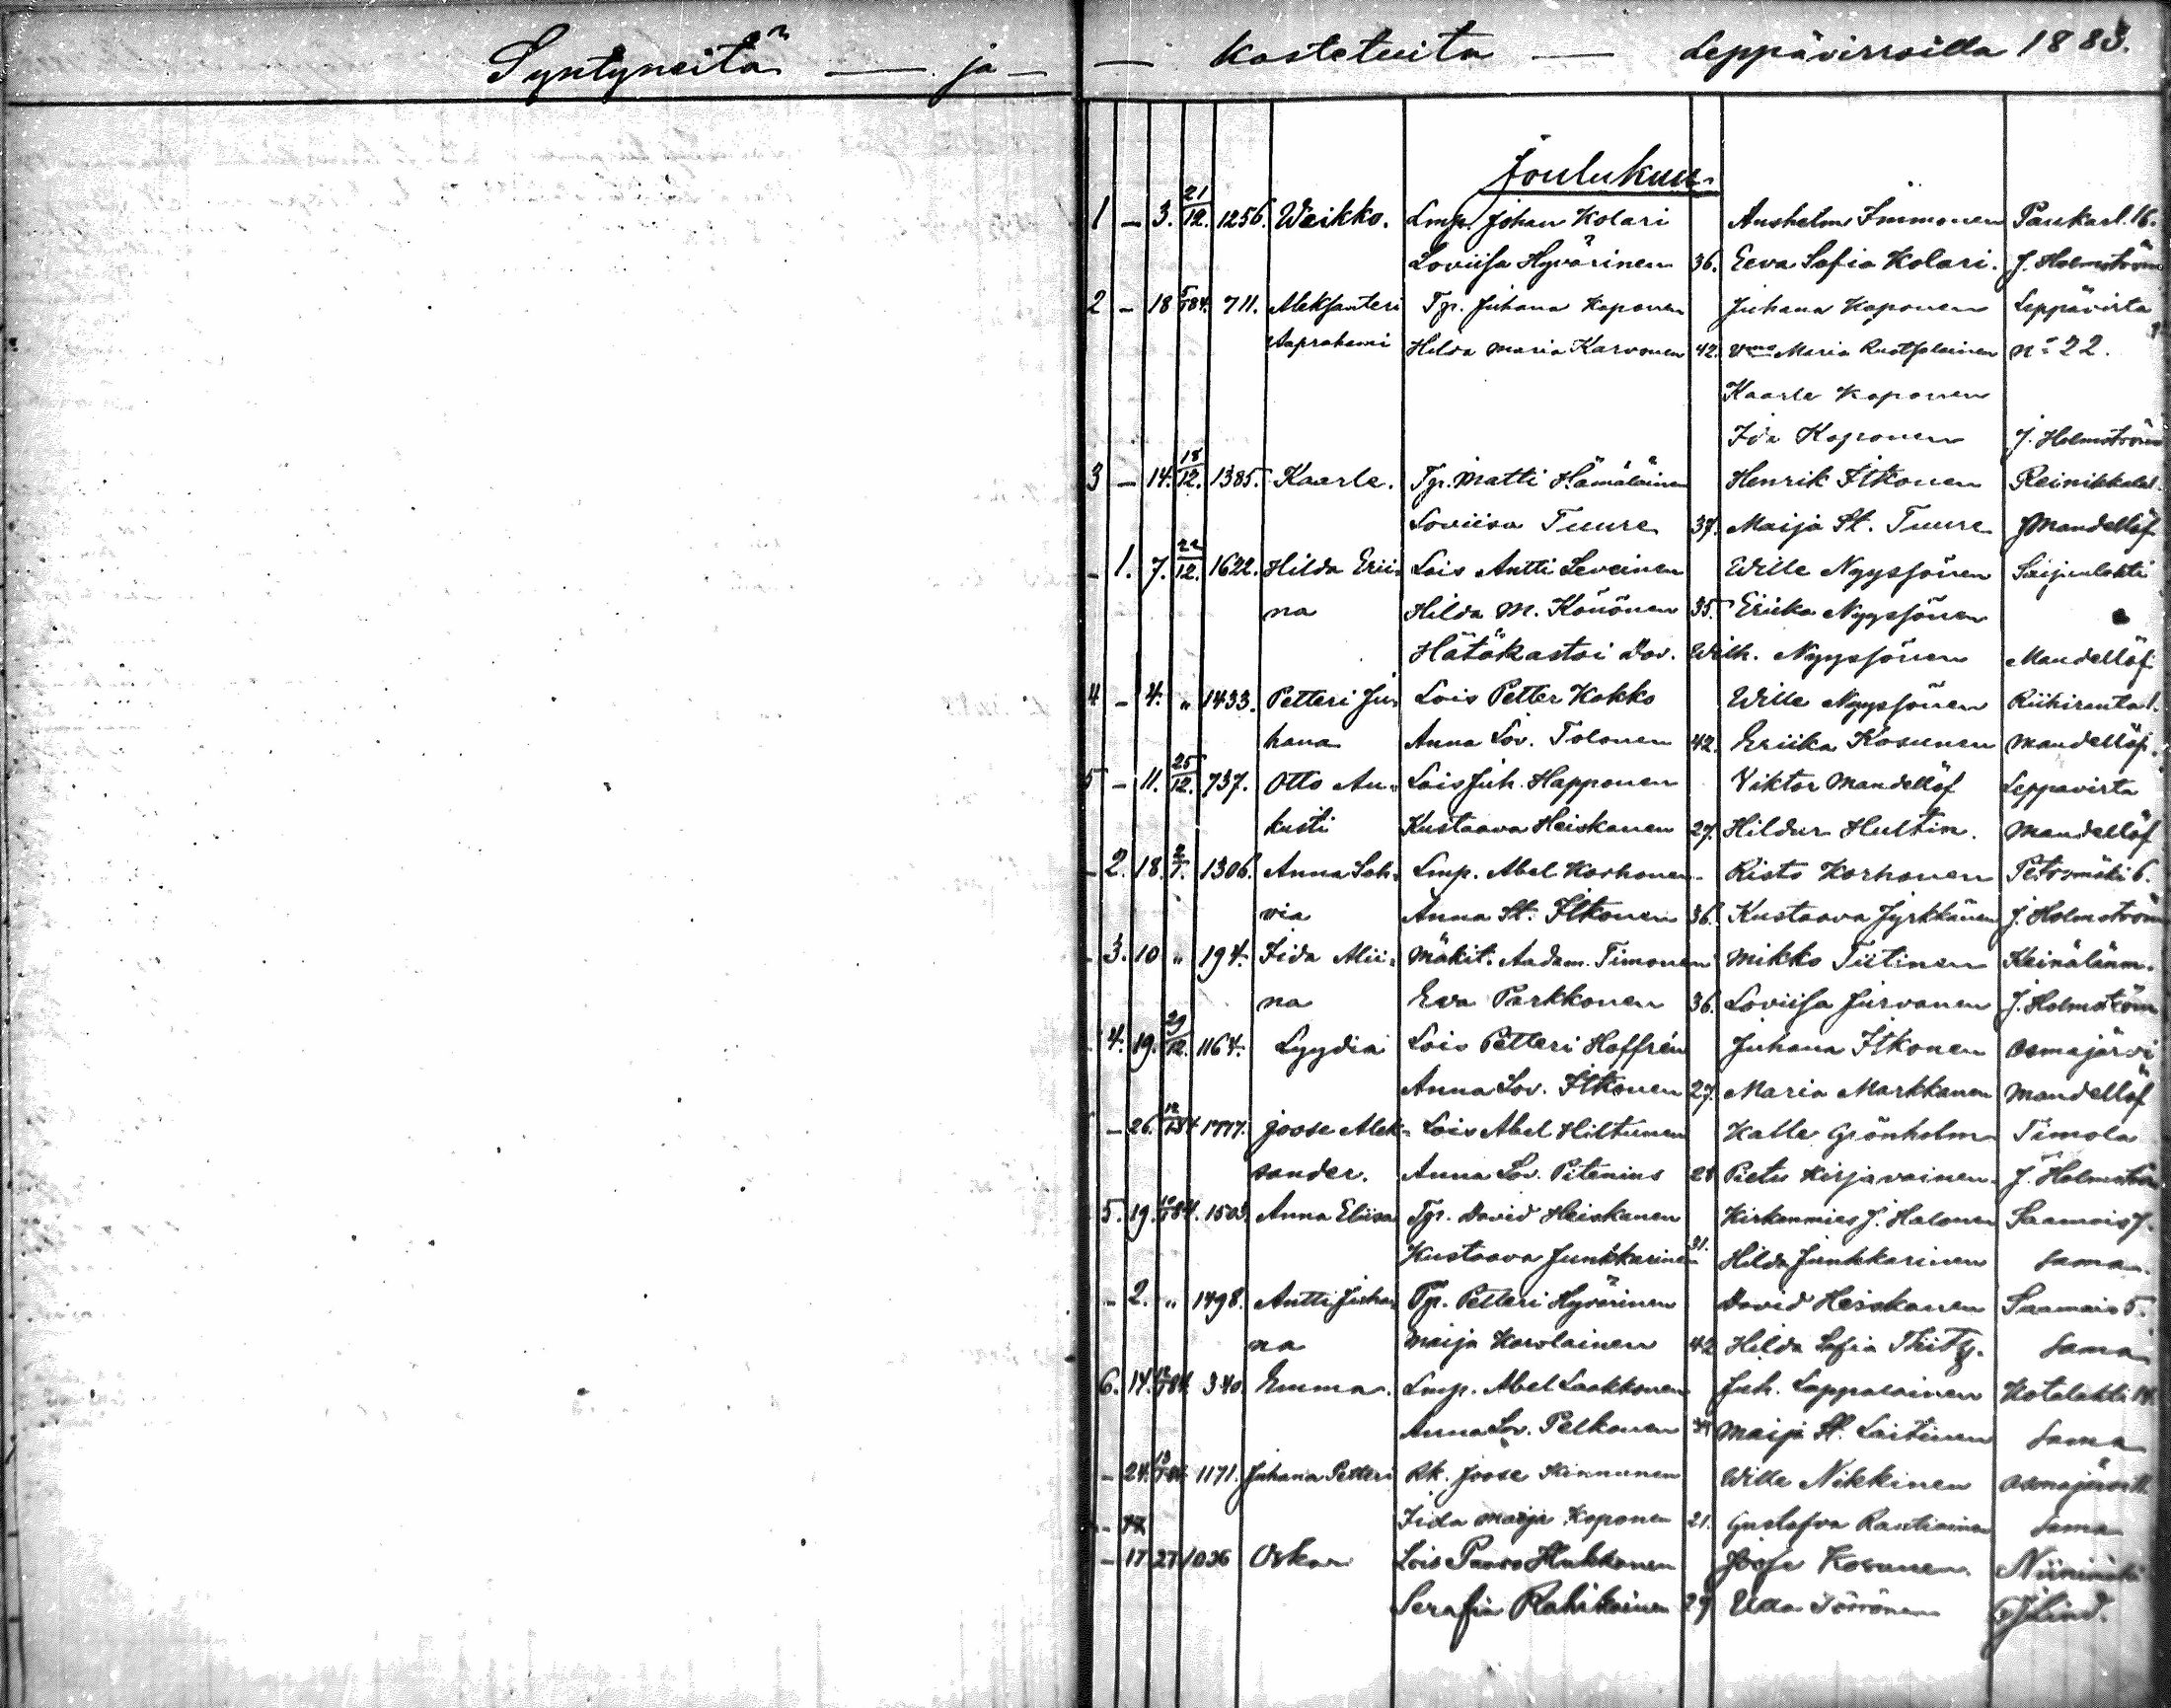 Syntyneitä — ja — — Kastetuita — Leppävirroilla 1883.
Joulukuu
1 — 3. 21/12. 1256. Weikko. Lmp. Johan Kolari Anshelm Immonen Paukarl. 16.
Loviisa Hyvärinen 36. Eeva Sofia Kolari. J. Holmström
2 — 18 5/1 84. 711. Aleksanteri Tp. Juhana Koponen Juhana Koponen Leppävirta
Aaprahami Hilda Maria Karvonen 42. Vmo Maria Ruotsalainen No 22.
Kaarle Koponen
Ida Koponen J. Holmström
3 — 14. 18/12. 1385. Kaarle. Tp. Matti Hämäläinen Henrik Itkonen Reinikkalal.
Loviisa Tuure 37. Maija St. Tuure Mandellöf
— 1. 7. 22/12. 1622. Hilda Erii- Lois Antti Leveinen Wille Nyyssönen Saijanlahti
na Hilda M. Könönen 35. Eriika Nyyssönen
Hätäkastoi Lov. Wilh. Nyyssönen Mandellöf
4 — 4. " 1433. Petteri Ju- Lois Petter Kokko Wille Nyyssönen Riihiranta 1.
hana Anna Lov. Tolonen 42. Eriika Kosunen Mandellöf.
5 — 11. 25/12. 737. Otto Au- Lois Juh. Happonen Viktor Mandellöf Leppävirta
kusti Kustaava Heiskanen 27. Hildur Hultin. Mandellöf
— 2. 18. 2/1. 1306. Anna Soh- Lmp. Abel Korhonen Risto Korhonen Petromäki 6.
via Anna St. Itkonen 36. Kustaava Jyrkkänen J. Holmström
— 3. 10 " 194. Iida Alii- Mäkit. Aadam Timonen Mikko Tiitinen Keinälänm.
na Eva Parkkonen 36. Loviisa Jurvanen J. Holmström
4. 19. 29/12. 1164. Lyydia Lois Petteri Hoffrén Juhana Itkonen Osmajärvi
Anna Lov. Itkonen 27. Maria Markkanen Mandellöf
— 26. 12/1 84 1777. Joose Alek- Lois Abel Hiltunen Kalle Grönholm Timola
sander. Anna Lov. Pitenius 28 Pietu Kirjavainen. J. Holmström
5. 19. 10/1 84. 1503. Anna Eliisa Tp. David Heiskanen Kirkonmies J. Halonen Saamais 7.
Kustaava Junkkarinen 31. Hilda Junkkarinen sama.
— 2. " 1498. Antti Juha- Tp. Petteri Hyvärinen David Heiskanen Saamais 5.
na Maija Karolainen 42 Hilda Sofia Thitz. sama
6. 14. 12/1 84. 340. Emma. Lmp. Abel Laakkonen Juh. Lappalainen Kotalahti 14.
Anna Lov. Pelkonen 34 Maija St. Laitinen sama
— 24. 1171. Juhana Petteri Rk. Joose Kinnunen Wille Nikkinen Osmajärvi
Iida Maija Koponen 21. Gustafva Rantiainen sama
— 17 27 1036 Oskar Lois Paavo Hukkanen Josse Kosunen Niinimäki
Serafia Rahikainen 29 Ulla Törrönen Lind.